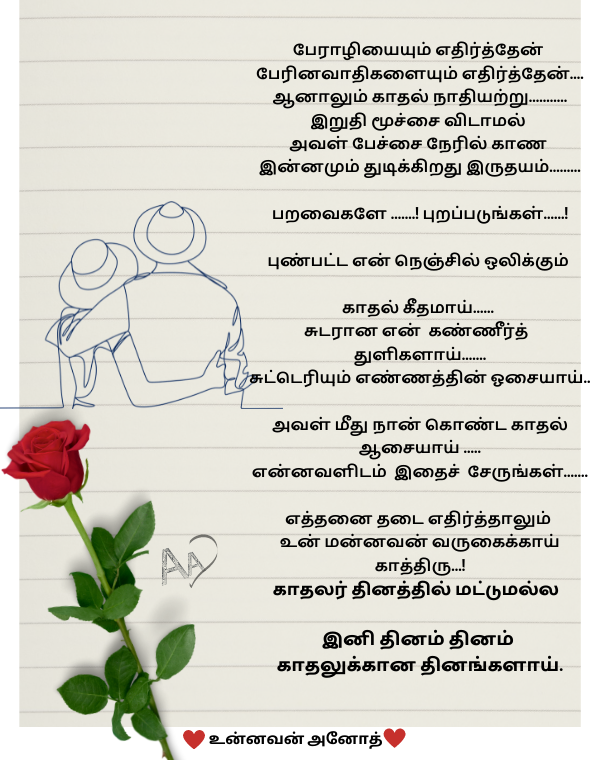 பேராழியையும் எதிர்த்தேன்
பேரினவாதிகளையும் எதிர்த்தேன்....
ஆனாலும் காதல் நாதியற்று...........
இறுதி மூச்சை விடாமல்
அவள் பேச்சை நேரில் காண
இன்னமும் துடிக்கிறது இருதயம்.........
பறவைகளே .......! புறப்படுங்கள்......!
புண்பட்ட என் நெஞ்சில் ஒலிக்கும்
காதல் கீதமாய்......
சுடரான என் கண்ணீர்த்
துளிகளாய்.......
சுட்டெரியும் எண்ணத்தின் ஓசையாய்..
அவள் மீது நான் கொண்ட காதல்
ஆசையாய் .....
என்னவளிடம் இதைச் சேருங்கள்.......
எத்தனை தடை எதிர்த்தாலும்
உன் மன்னவன் வருகைக்காய்
காத்திரு...!
காதலர் தினத்தில் மட்டுமல்ல
இனி தினம் தினம்
காதலுக்கான தினங்களாய்.
AA
❤️ உன்னவன் அனோத் ❤️